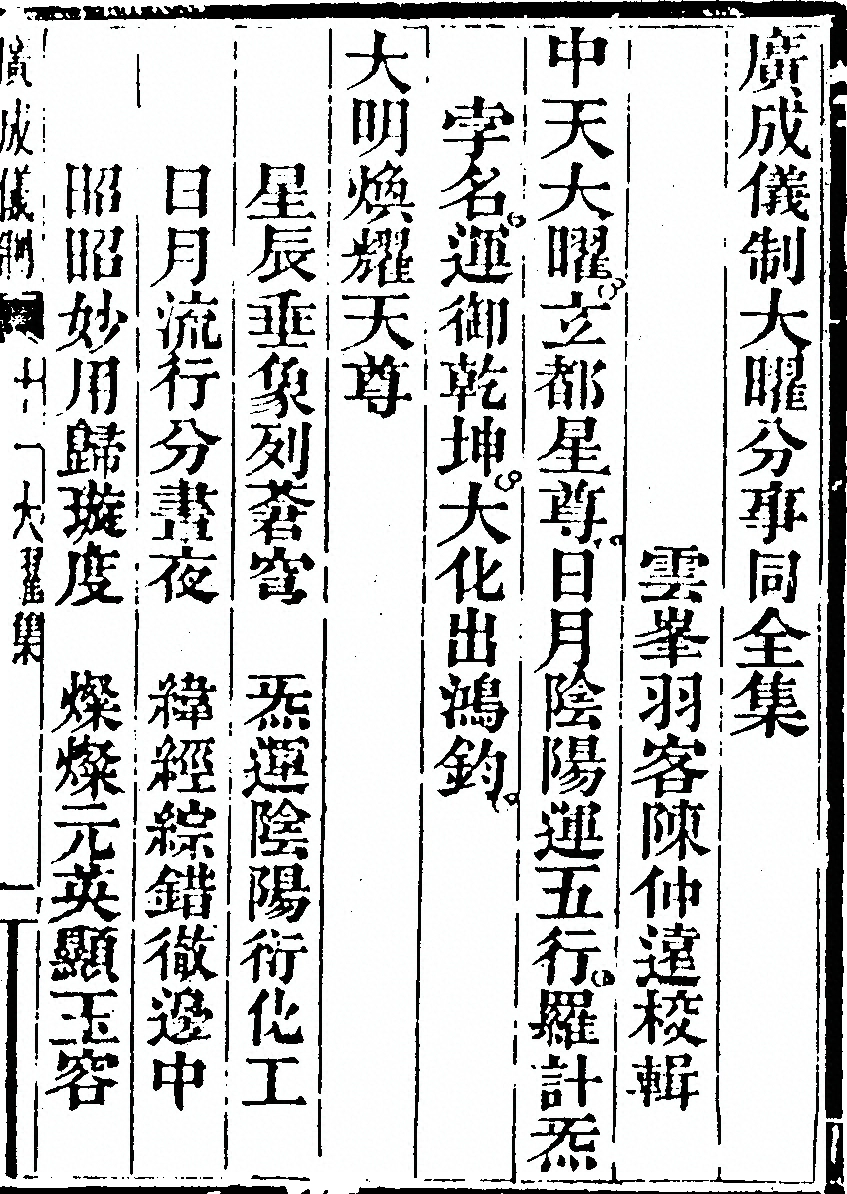 廣成儀制大曜分事同全集
雲峯羽客陳仲遠校輯
中天大曜立都星尊日月陰陽運五行羅計炁
孛名運御乾坤大化出鴻鈞
大明煥耀天尊
星辰垂象列蒼穹　炁運陰陽衍化工
日月流行分晝夜　緯經綜錯徹邊中
昭昭妙用歸璇度　燦燦元英顯玉容
廣成儀制　十一大曜集　一